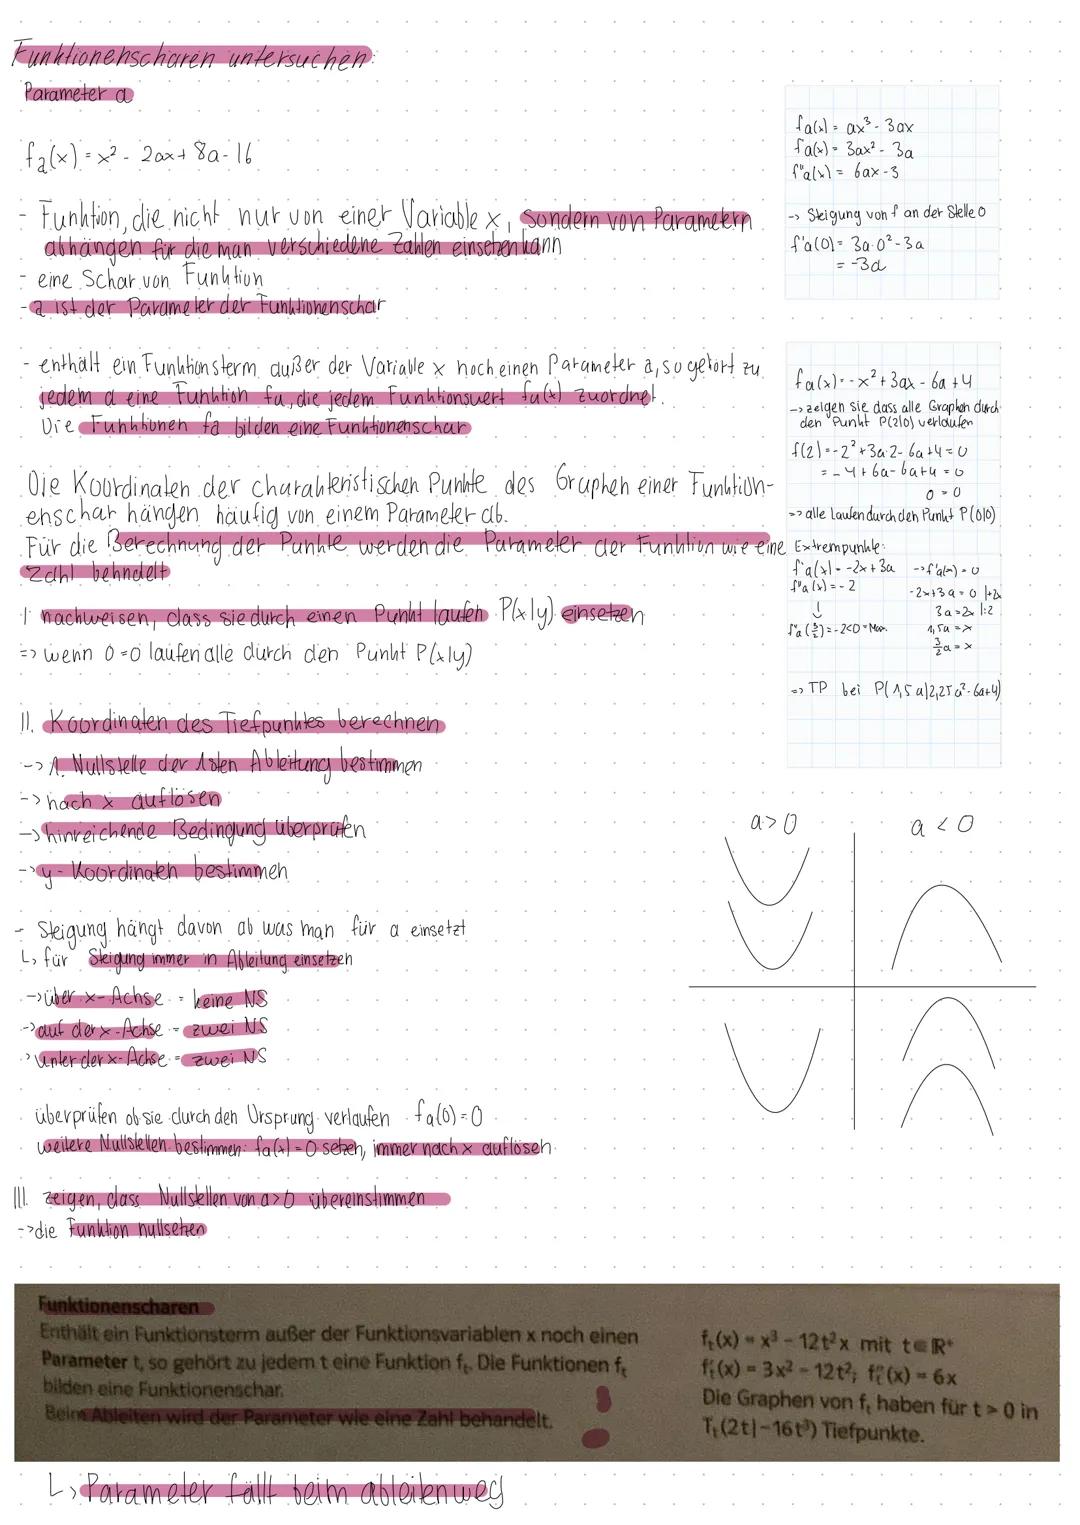 Funktionenscharen untersuchen:
Parameter a
fa(x) = x² - 2ax + 8a - 16
- Funktion, die nicht nur von einer Variable x, sondern von Parametern
abhängen für die man verschiedene Zahlen einsetzen kann
- eine Schar von Funktion
- a ist der Parameter der Funktionenschar
- enthält ein Funktionsterm außer der Variable x noch einen Parameter a, so gehört zu
jedem a eine Funktion fa, die jedem Funktionswert fa(x) zuordnet.
Die Funktionen fa bilden eine Funktionenschar
Die Koordinaten der charakteristischen Punkte des Graphen einer Funktion-
enschar hängen häufig von einem Parameter ab.
Für die Berechnung der Punkte werden die Parameter der Funktion wie eine
Zahl behndelt
I nachweisen, dass sie durch einen Punkt laufen P(x|y) einsetzen
=> wenn 0=0 laufen alle durch den Punkt P(x|y)
II. Koordinaten des Tiefpunktes berechnen
-> 1. Nullstelle der 1sten Ableitung bestimmen
-> nach x auflösen
-> hinreichende Bedingung überprüfen
-> y-Koordinaten bestimmen
- Steigung hängt davon ab was man für a einsetzt
↳ für Steigung immer in Ableitung einsetzen
-> über x-Achse = keine NS
-> auf der x-Achse = zwei NS
-> unter der x-Achse = zwei NS
überprüfen ob sie durch den Ursprung verlaufen fa(0)=0
weitere Nullstellen bestimmen: fa(x)=0 setzen, immer nach x auflösen
III. zeigen, dass Nullstellen von a>0 übereinstimmen
-> die Funktion nullsetzen
fa(x) = ax³ - 3ax
fa(x) = 3ax² - 3a
f"a(x) = 6ax - 3
-> Steigung von f an der Stelle 0
f'a(0) = 3a·0² - 3a
= -3a
fa(x) = -x² + 3ax - 6a + 4
-> zeigen sie dass alle Graphen durch
den Punkt P(2|0) verlaufen
f(2) = -2² + 3a·2 - 6a + 4 = 0
= -4 + 6a - 6a + 4 = 0
0 = 0
=> alle laufen durch den Punkt P(0|0)
Extrempunkte:
f'a(x) = -2x + 3a -> f'a(x) = 0
f"a(x) = -2 -2x + 3a = 0 |+2x
3a = 2x |:2
f"a(3/2) = -2<0 = Max. 1,5a = x
3/2 a = x
=> TP bei P(1,5a|2,25a²-6a+4)
a > 0 a < 0
Funktionenscharen
Enthält ein Funktionsterm außer der Funktionsvariablen x noch einen
Parameter t, so gehört zu jedem t eine Funktion fₜ. Die Funktionen fₜ
bilden eine Funktionenschar.
Beim Ableiten wird der Parameter wie eine Zahl behandelt.
fₜ(x) = x³ - 12t²x mit t∈ℝ⁺
fₜ'(x) = 3x² - 12t²; fₜ''(x) = 6x
Die Graphen von fₜ haben für t > 0 in
Tₜ(2t|-16t³) Tiefpunkte.
↳ Parameter fällt beim ableiten weg